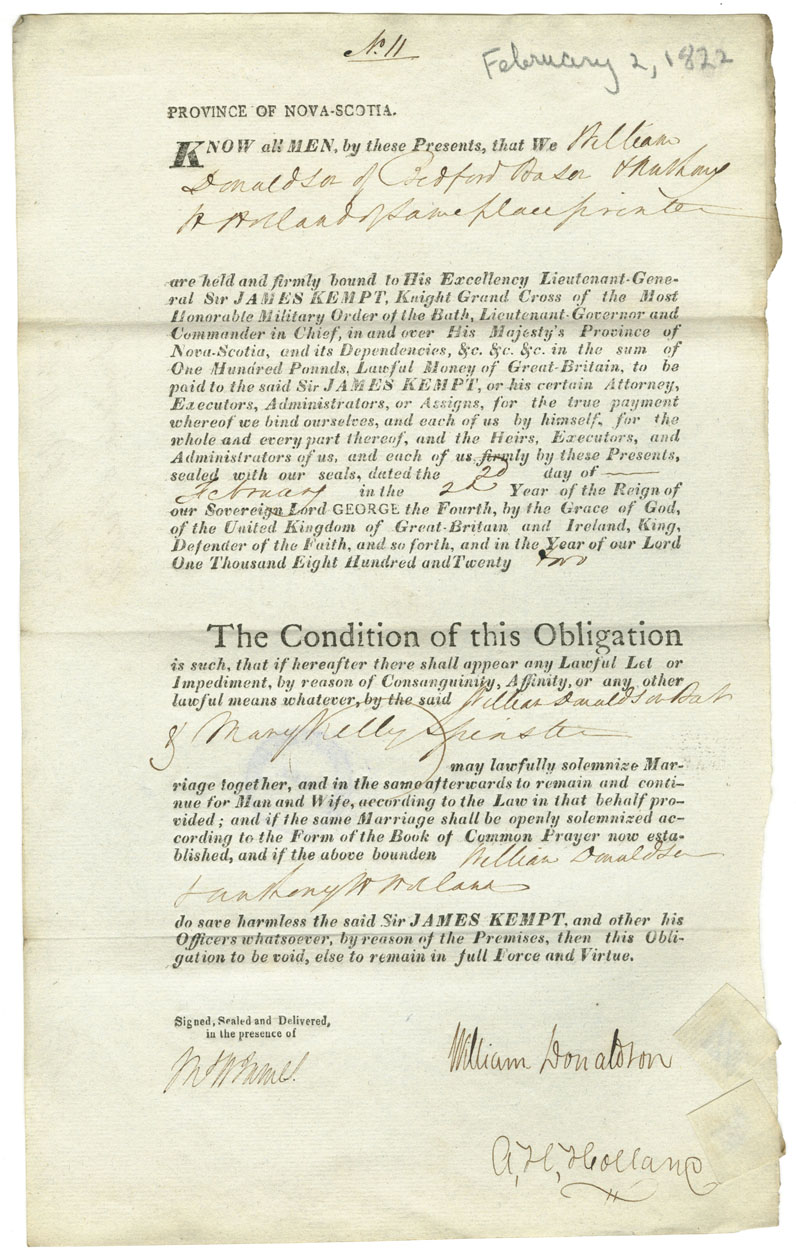 No. 11
February 2, 1822
PROVINCE OF NOVA-SCOTIA.
KNOW all MEN, by these Presents, that We William
Donaldson of Bedford Basin & Anthony
H Holland of same place printer
are held and firmly bound to His Excellency Lieutenant-Gene-
ral Sir JAMES KEMPT, Knight Grand Cross of the Most
Honorable Military Order of the Bath, Lieutenant-Governor and
Commander in Chief, in and over His Majesty's Province of
Nova-Scotia, and its Dependencies, &c. &c. &c. in the sum of
One Hundred Pounds, Lawful Money of Great-Britain, to be
paid to the said Sir JAMES KEMPT, or his certain Attorney,
Executors, Administrators, or Assigns, for the true payment
whereof we bind ourselves, and each of us by himself, for the
whole and every part thereof, and the Heirs, Executors, and
Administrators of us, and each of us firmly by these Presents,
sealed with our seals, dated the 2d day of
February in the 2d Year of the Reign of
our Sovereign Lord GEORGE the Fourth, by the Grace of God,
of the United Kingdom of Great-Britain and Ireland, King,
Defender of the Faith, and so forth, and in the Year of our Lord
One Thousand Eight Hundred and Twenty two
The Condition of this Obligation
is such, that if hereafter there shall appear any Lawful Let or
Impediment, by reason of Consanguinity, Affinity, or any other
lawful means whatever, by the said William Donaldson Bat
& Mary Kelly Spinster
may lawfully solemnize Mar-
riage together, and in the same afterwards to remain and conti-
nue for Man and Wife, according to the Law in that behalf pro-
vided; and if the same Marriage shall be openly solemnized ac-
cording to the Form of the Book of Common Prayer now esta-
blished, and if the above bounden William Donaldson
& Anthony H Holland
do save harmless the said Sir JAMES KEMPT, and other his
Officers whatsoever, by reason of the Premises, then this Obli-
gation to be void, else to remain in full Force and Virtue.
Signed, Sealed and Delivered,
in the presence of
William Donaldson
A, H, Holland